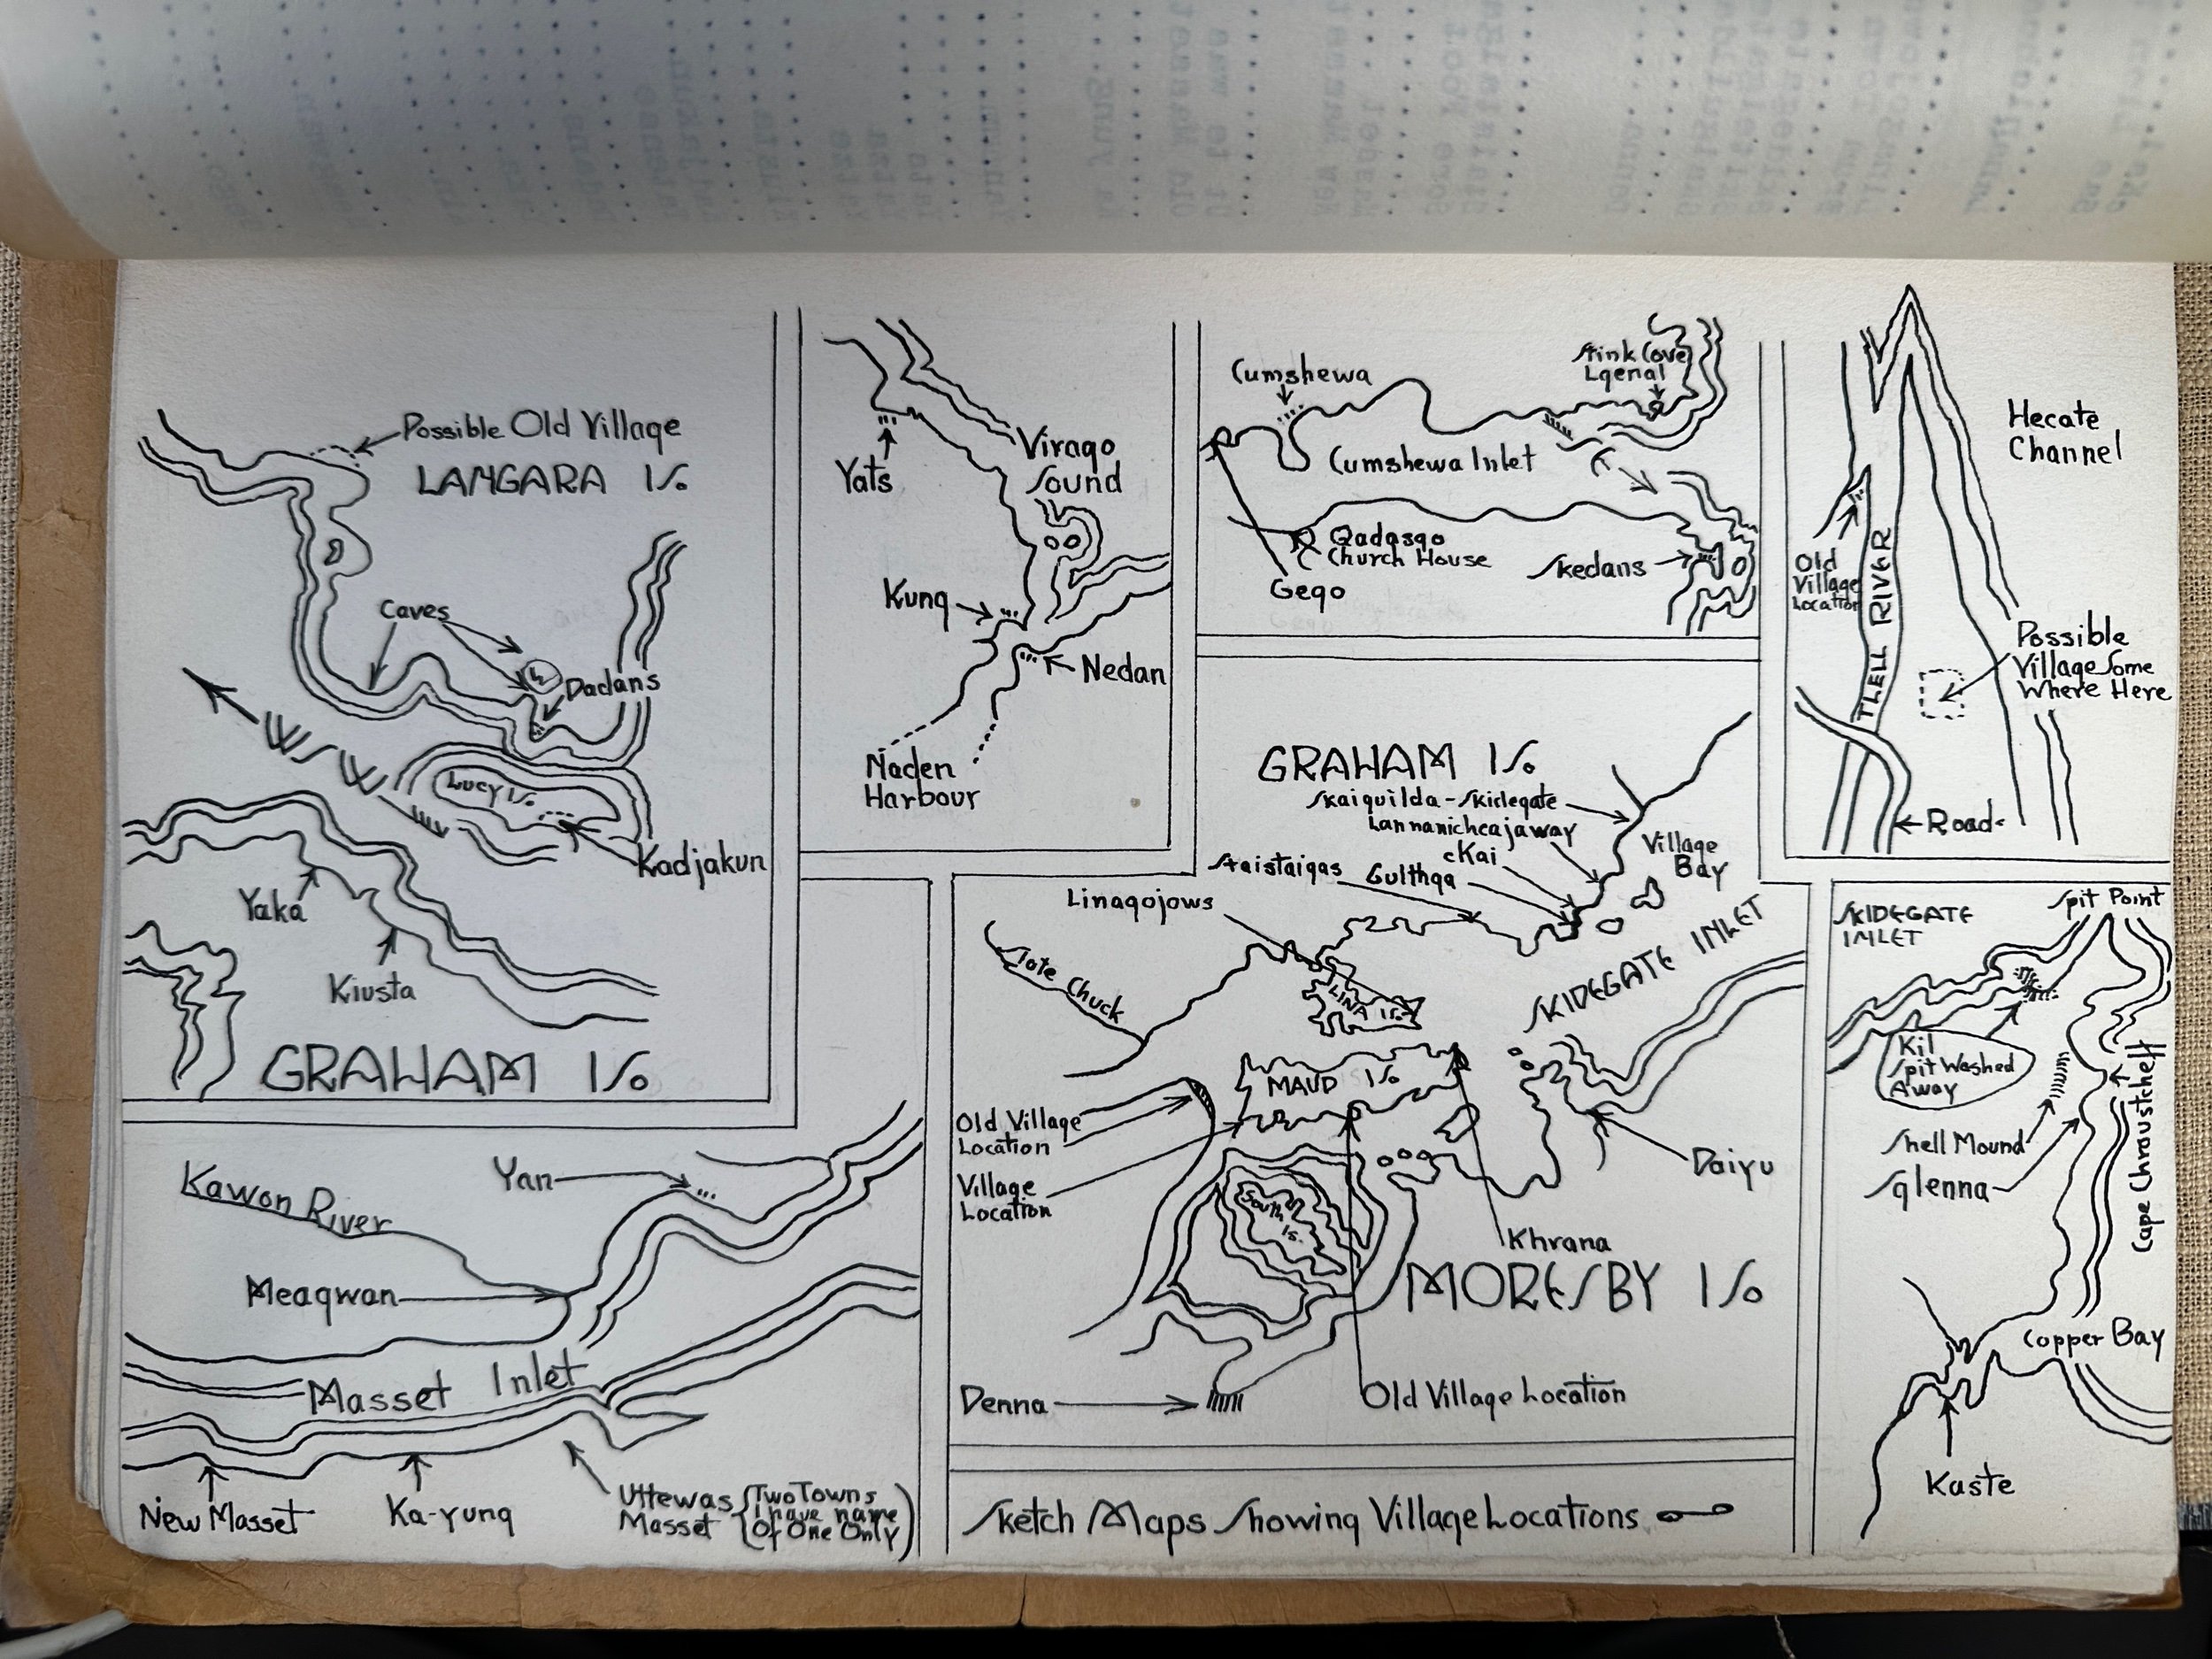 Possible Old Village
LANGARA Is.
Caves
Dadans
Lucy Is.
Kadjakun
Yaka
Kiusta
GRAHAM Is.
Yats
Virago
Sound
Kung
Nedan
Naden
Harbour
Cumshewa
Stink Cove
Lgenal
Cumshewa Inlet
Qadasgo
Church House
Skedans
Gego
Hecate
Channel
Old
Village
Location
TLELL RIVER
Possible
Village Some
Where Here
Road
GRAHAM Is.
Skaiguilda-Skidegate
Lannanicheajaway
cKai
Village
Bay
Staistaigas
Gulthga
Linagojows
Tote Chuck
LINA Is.
SKIDEGATE INLET
MAUD Is.
Old Village
Location
Village
Location
South
Is.
Daiyu
Khrana
MORESBY Is.
Denna
Old Village Location
SKIDEGATE
INLET
Spit Point
Kil
Spit Washed
Away
Shell Mound
Sglenna
Cape Chroustcheff
Copper Bay
Kaste
Kawon River
Yan
Meagwan
Masset Inlet
New Masset
Ka-yung
Uttewas
Masset
Two Towns
have name
Of One Only
Sketch Maps Showing Village Locations